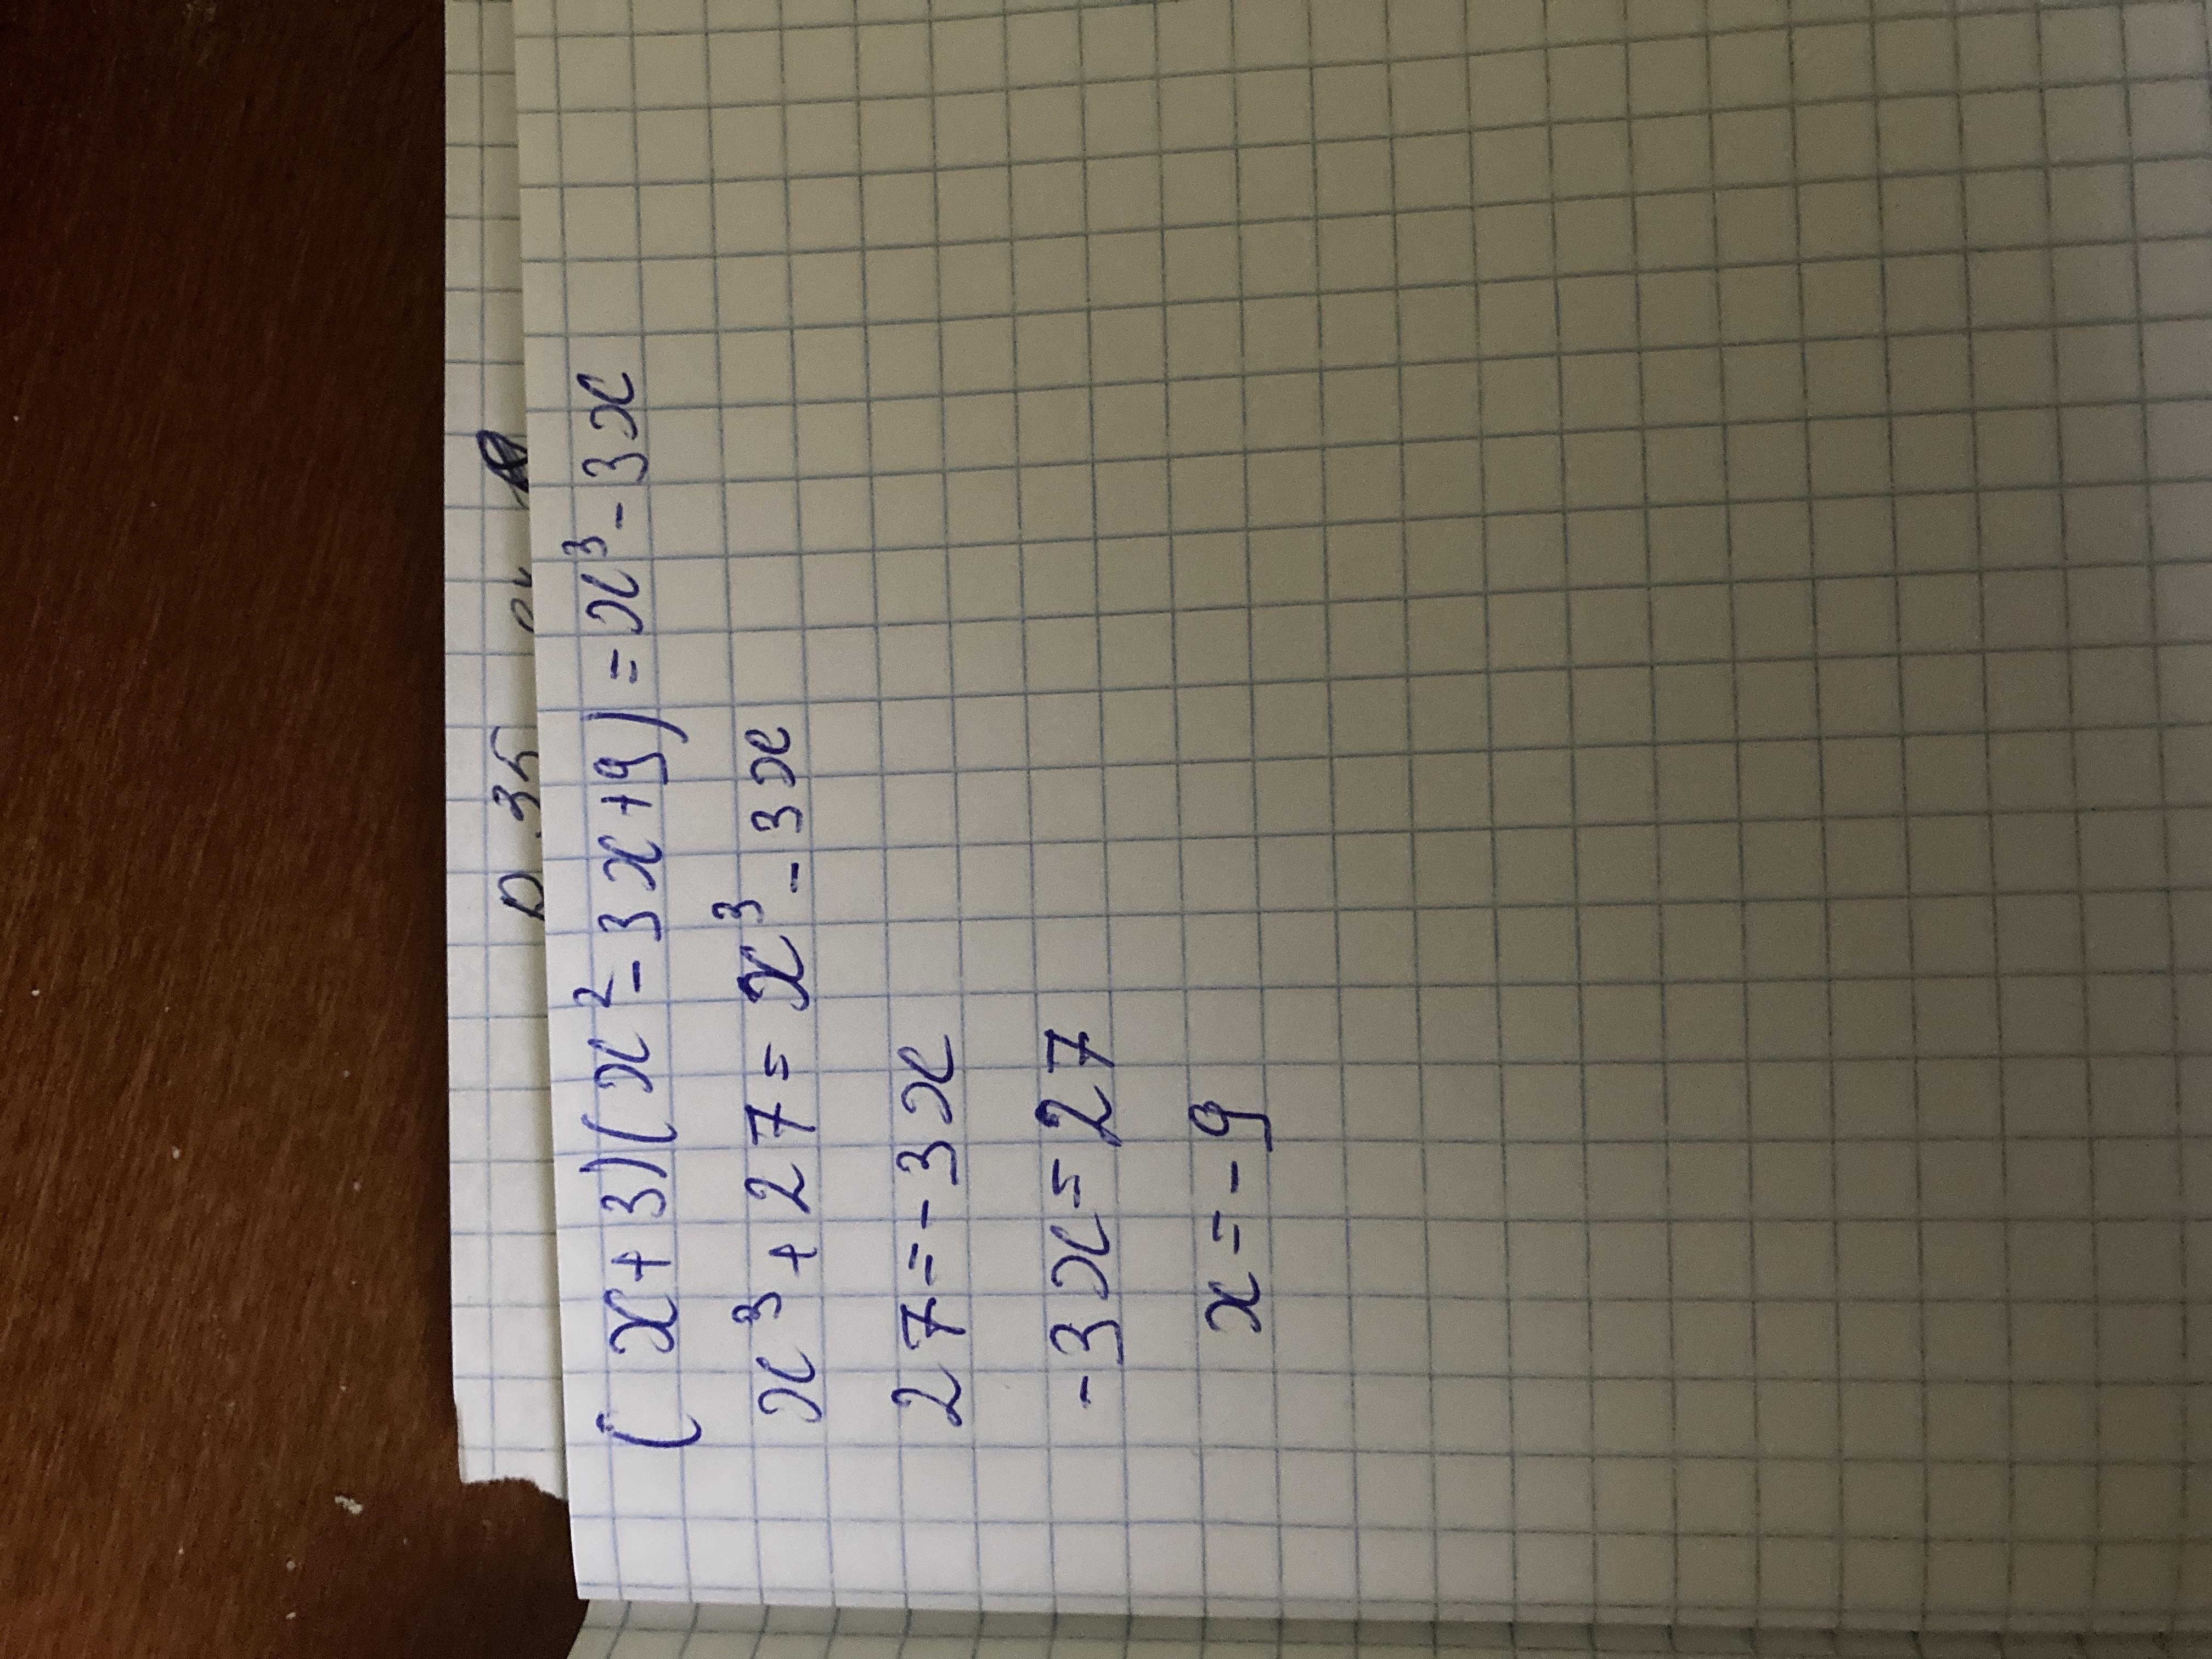 (x+3)(x²-3x+9)=x³-3x
x³+27=x³-3x
27=-3x
-3x=27
x=-9